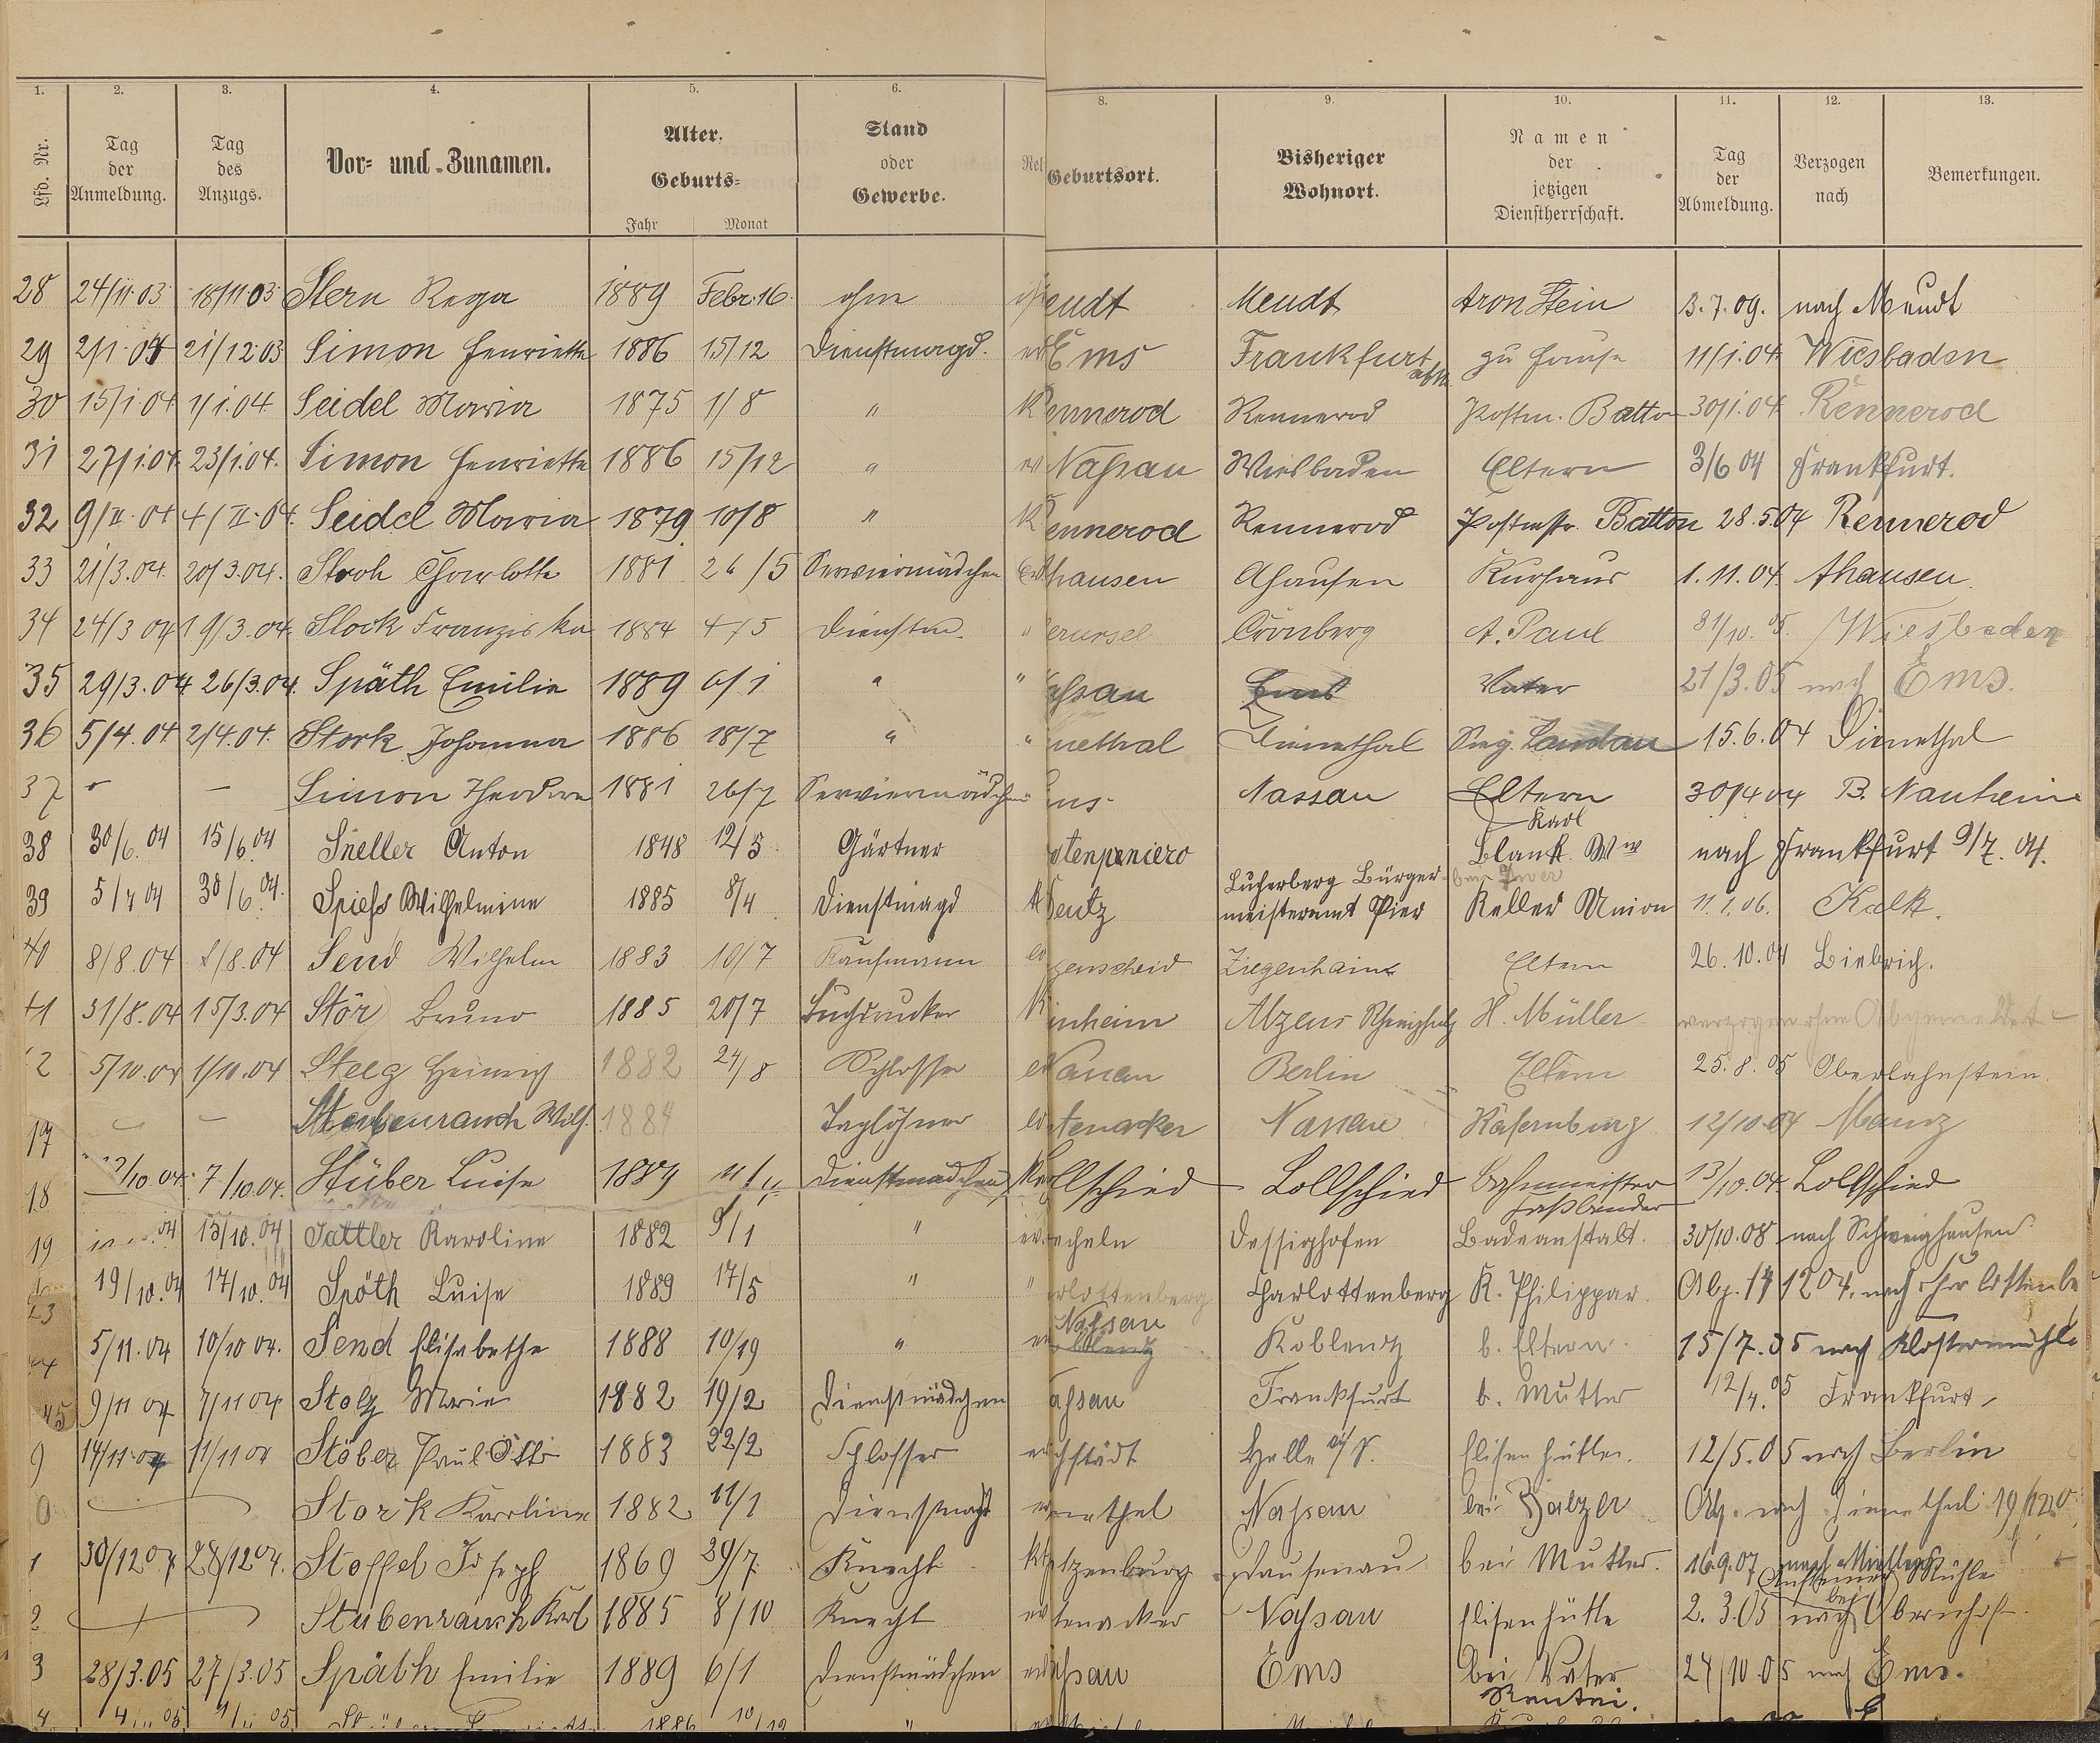 1. 2. 3. 4. 5. 6. 8. 9. 10. 11. 12. 13.
Lfd. Nr. Tag der Anmeldung. Tag des Anzugs. Vor- und Zunamen. Alter. Geburts- Jahr Monat Stand oder Gewerbe. Rel Geburtsort. Bisheriger Wohnort. Namen der jetzigen Dienstherrschaft. Tag der Abmeldung. Verzogen nach Bemerkungen.
28 24/11.03 18/11.03 Stern Rega 1889 Febr. 16. ohne endt Meudt Aron Stein 3.7.09. nach Meudt
29 2/1.04 21/12.03 Simon Henriette 1886 15/12 Dienstmagd. ev Ems Frankfurt zu Hause 11/1.04 Wiesbaden
30 15/1.04 1/1.04 Seidel Maria 1875 1/8 " K ennerod Rennerod Postm. Batton 30/1.04 Rennerod
31 27/1.04 23/1.04. Simon Henriette 1886 15/12 " ev Nassau Wiesbaden Eltern 3/6 04 Frankfurt.
32 9/II.04 4/II.04. Seidel Maria 1879 10/8 " K ennerod Rennerod Postmstr. Batton 28.5.04 Rennerod
33 21/3.04. 20/3.04. Stroh Charlotte 1881 26/5 Serviermädchen hausen Ahausen Kurhaus 1.11.04 Ahausen.
34 24/3 04 19/3.04. Stock Franziska 1884 4/5 Dienstm. " erursel Cronberg A. Paul 31/10.05. Wiesbaden
35 29/3.04 26/3.04. Späth Emilie 1889 6/1 " " assau Ems Vater 21/3.05 nach Ems.
36 5/4.04 2/4.04. Stork Johanna 1886 18/7 " " nethal Dienethal Sieg. Landau 15.6.04 Dienethal
37 - - Simon Theodora 1881 26/7 Serviermädchen ms- Nassau Eltern 30/4 04 B. Nauheim
38 30/6.04 15/6.04 Sneller Anton 1848 12/5 Gärtner Karl Blank Ww nach Frankfurt 9/7.04.
39 5/7 04 30/6.04. Spieß Wilhelmine 1885 8/4 Dienstmagd K Deutz Lucherberg Bürgermeisteramt Pier Keller Union 11.1.06. Kalk.
40 8/8.04 /8.04 Send Wilhelm 1883 10/7 Kaufmann ev genscheid Ziegenhain Eltern 26.10.04 Biebrich.
41 31/8.04 15/3.04 Stör Bruno 1885 20/7 Buchdrucker K inheim H. Müller verzogen ohne Abgemeldet
2 5/10.04 1/10.04 Steeg Heinrich 1882 24/8 Schlosser ev Nassau Berlin Eltern 25.8.05 Oberlahnstein
17 - - Stubenrauch Wilh. 1884 Taglöhner ev tenacker Nassau 12/10.04 Mainz
18 /10.04 7/10.04. Stüber Luise Dienstmädchen llschied Lollschied Bahnmeister Faßbender 13/10.04 Lollschied
19 .04 13/10.04 Sattler Karoline 1882 9/1 " ev. echeln Dessighofen Badeanstalt. 30/10.08 nach Schweighausen
23 19/10.04 17/10.04 Späth Luise 1889 17/5 " " rlottenberg Charlottenberg K. Philippar Abg. 14 12 04. nach Charlottenbe
5/11.04 10/10 04. Send Elisabethe 1888 10/19 " ev Nassau oblentz Koblentz b. Eltern. 15/7.05 nach Klostermühle
45 9/11 04 7/11 04 Stolz Marie 1882 19/2 Dienstmädchen assau Frankfurt b. Mutter 12/4.05 Frankfurt
9 14/11.04 11/11 04 Stöber Paul Otto 1883 22/2 Schlosser ev chstädt Halle a/S. Elisenhütte. 12/5.05 nach Berlin
0 Stork Karoline 1882 11/1 Dienstmagd ev nethal Nassau bei Balzer Abg. nach Dienethal
1 30/12 04 28/12 04. Stoffel Joseph 1869 29/7 Knecht kt lzenburg Dausenau bei Mutter. 16.9.07
2 Stubenrauch Karl 1885 8/10 Knecht ev tenacker Nassau Elisenhütte 2.3.05 nach Obernhof.
3 28/3.05 27/3.05 Späth Emilie 1889 6/1 Dienstmädchen ev assau Ems bei Vater 24/10 05 nach Ems.
4 05 05 1886 10/12 "